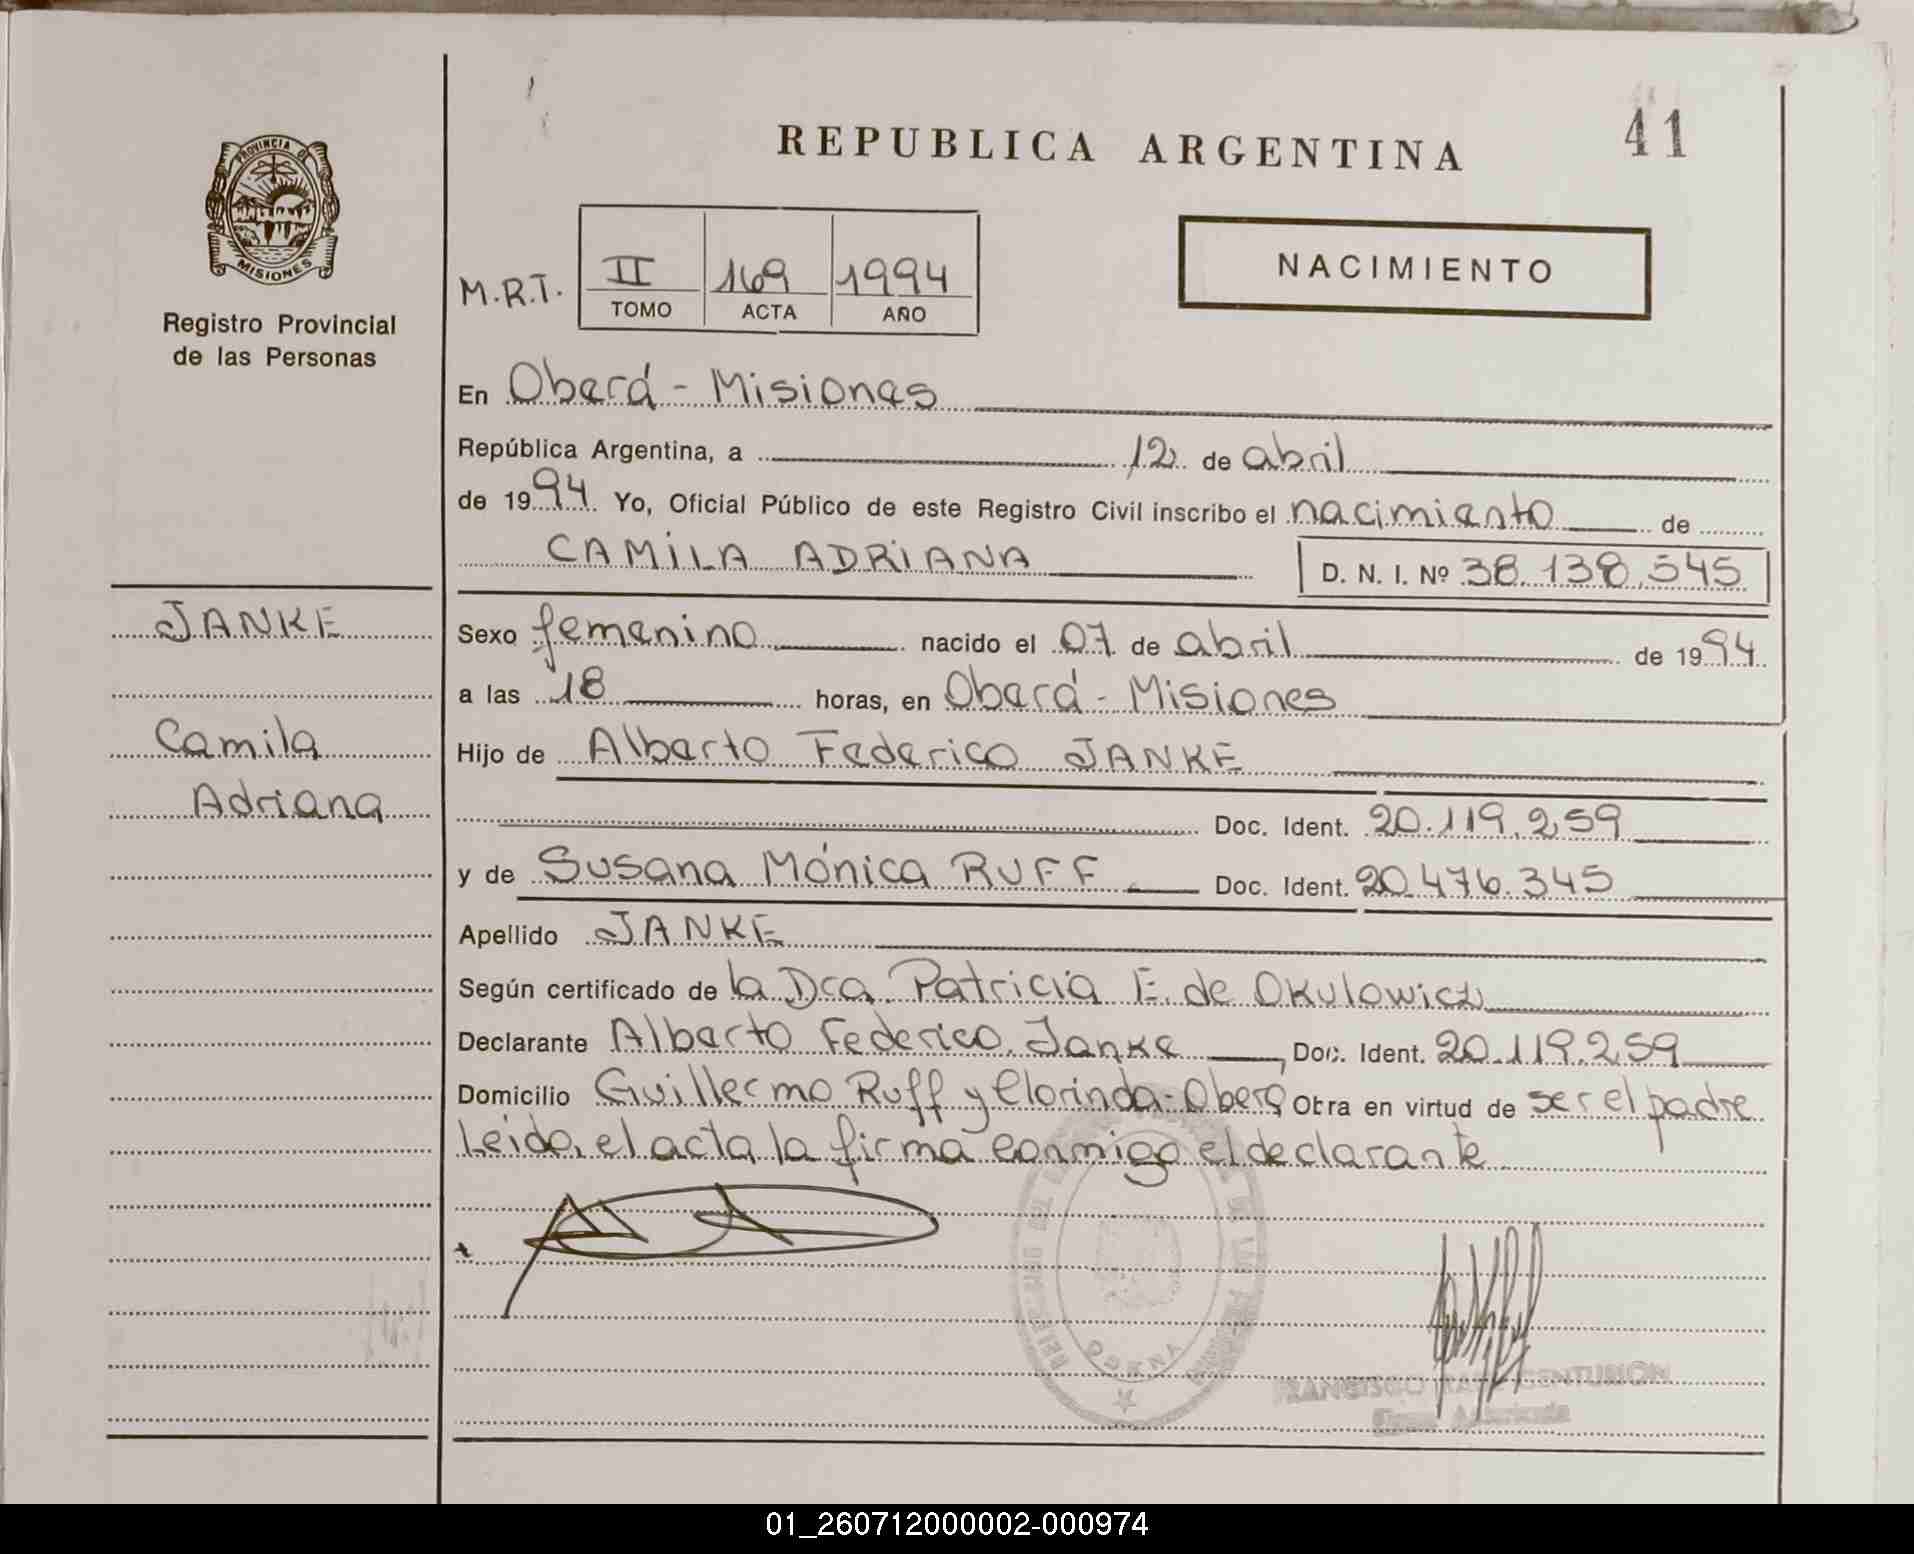 REPUBLICA ARGENTINA
41
PROVINCIA DE
MISIONES
Registro Provincial
de las Personas
NACIMIENTO
M.R.T.
II 169 1994
TOMO ACTA AÑO
En Oberá - Misiones
República Argentina, a 12 de abril
de 1994 Yo, Oficial Público de este Registro Civil inscribo el nacimiento de
CAMILA ADRIANA D. N. I. Nº 38.138.545
JANKE
Camila
Adriana
Sexo femenino nacido el 07 de abril de 1994
a las 18 horas, en Oberá - Misiones
Hijo de Alberto Federico JANKE
Doc. Ident. 20.119.259
y de Susana Mónica RUFF Doc. Ident. 20.476.345
Apellido JANKE
Según certificado de la Dra. Patricia E. de Okulowicz
Declarante Alberto Federico Janke, Doc. Ident. 20.119.259
Domicilio Guillermo Ruff y Clorinda - Oberá Obra en virtud de ser el padre
Leida, el acta, la firma conmigo el declarante
FRANCISCO CENTURION
01_260712000002-000974